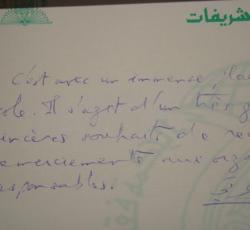 شريفات
C'est avec un immence
ole. Il s'agit d'un très g
incères souhaits de
emerciements aux org
esponsables.